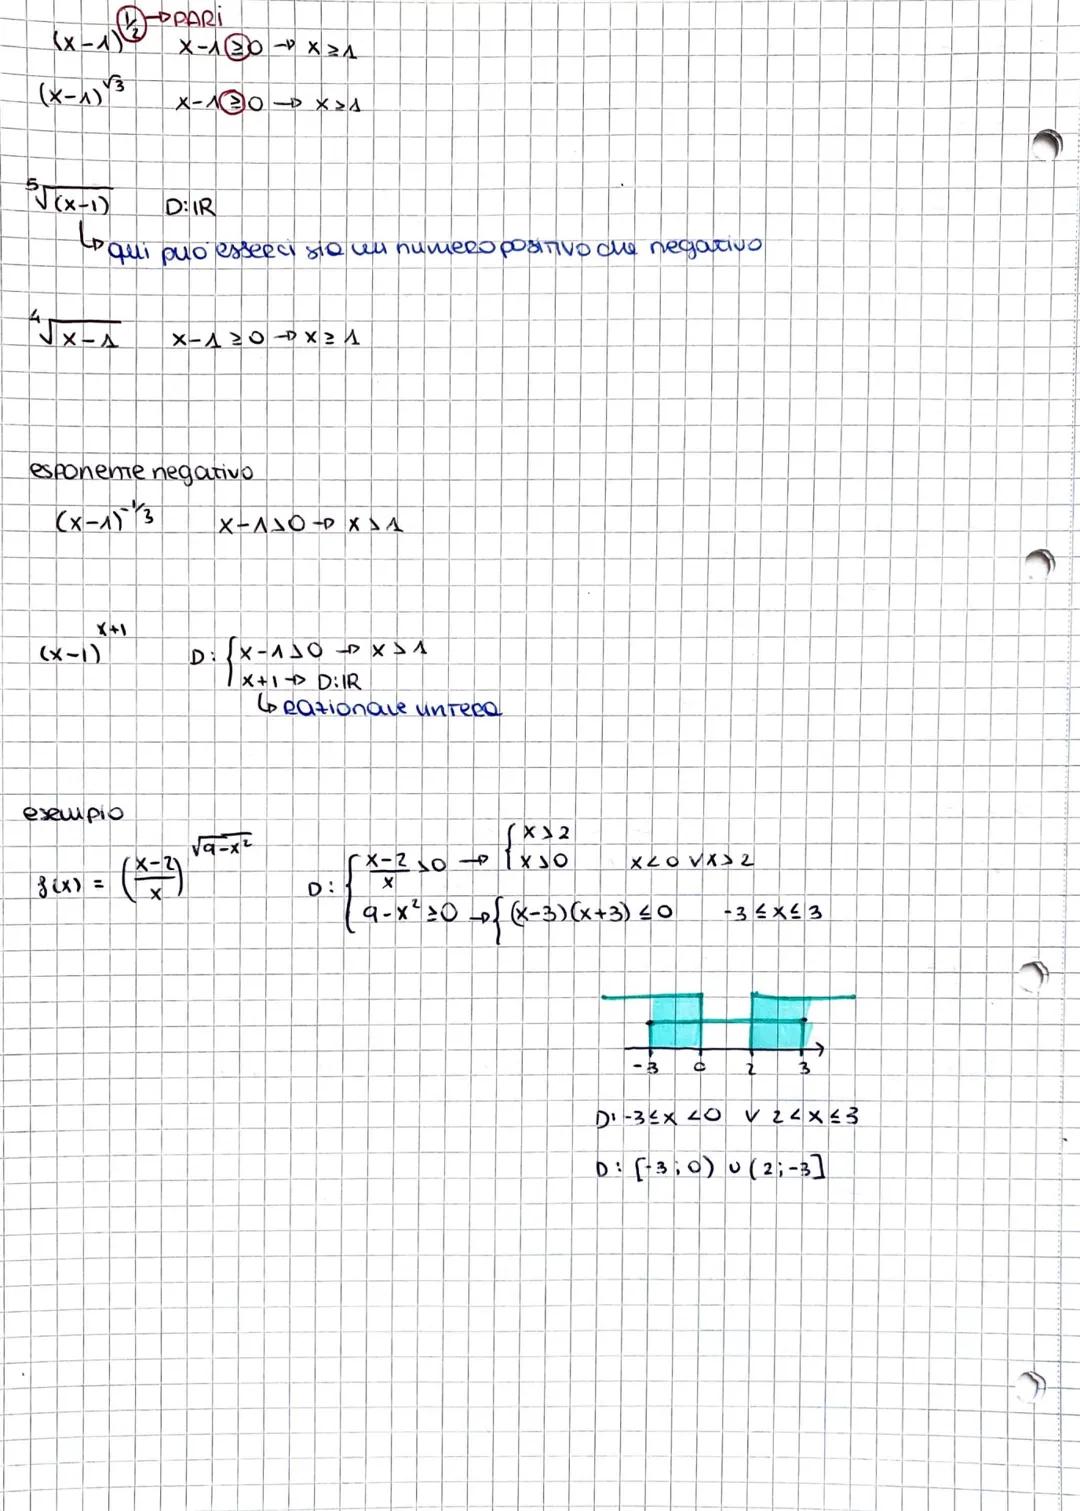 (x-1)^(1/2) → PARI x-1≥0 → x≥1
(x-1)^√3 x-1≥0 → x≥1
⁵√(x-1) D:ℝ
↳ qui può esserci sia un numero positivo che negativo
⁴√x-1 x-1≥0 → x≥1
esponente negativo
(x-1)^(-1/3) x-1>0 → x>1
(x-1)^(x+1) D: { x-1>0 → x>1
x+1 → D:ℝ
↳ razionale intera
esempio
f(x) = ((x-2)/x)^√9-x² D: { (x-2)/x >0 → { x>2 x>0 x<0 ∨ x>2
9-x²≥0 → { (x-3)(x+3)≤0 -3≤x≤3
-3 0 2 3
D: -3≤x<0 ∨ 2<x≤3
D: [-3;0) ∪ (2;-3]